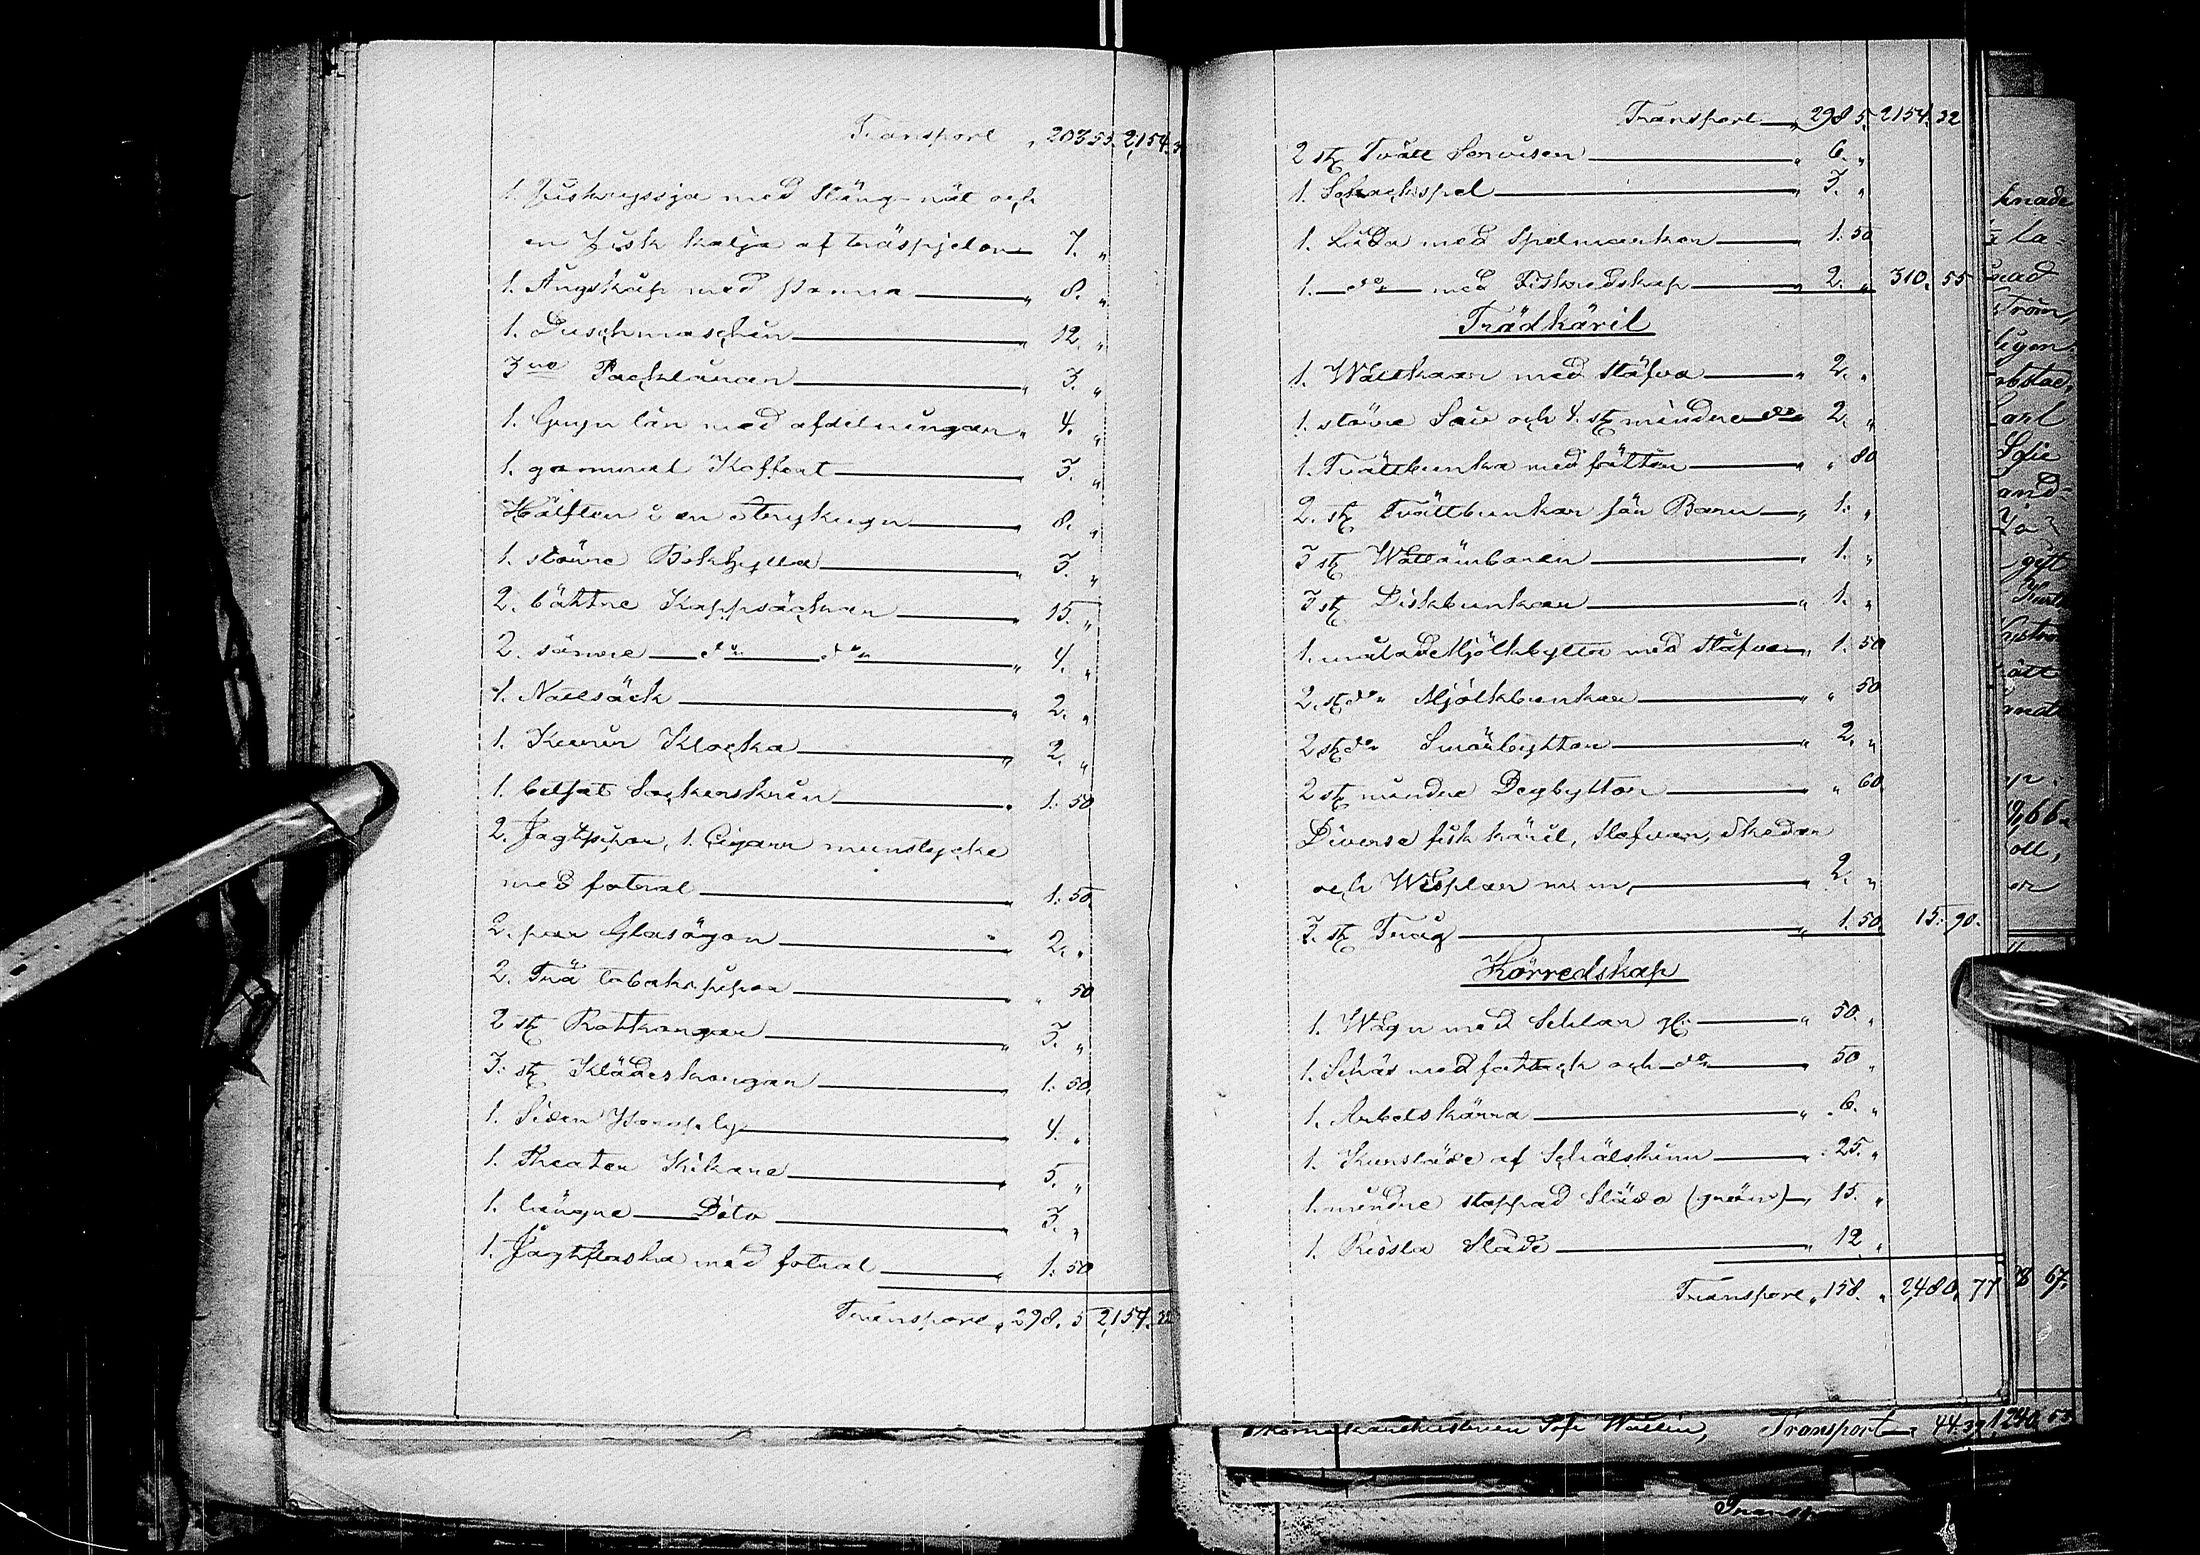 Transport „ 203.55. 2,154.3
1. Fiskryssja med Stäng-nät och
en Fisk kalja af träspjelor — 7. „
1. Ångskåp med panna — „ 8. „
1. Duschmaschin — „ 12. „
3ne Packlårar — „ 3. „
1. Gryn lår med afdelningar „ 4. „
1. gammal Koffert — „ 3. „
Hälften i en strykugn — „ 8. „
1. större Bokhylla — „ 3. „
2. bättre Kappsäckar — „ 15. „
2. sämre — d:o — d:o — „ 4. „
1. Nattsäck — „ 2. „
1. Kurir Klocka — „ 2. „
1. betsat Sockerskrin — „ 1. 50
2. Jagtpipor, 1. Cigarr munstycke
med fotral — „ 1. 50.
2. par Glasögon — „ 2. „
2. Trä tobakspipor — „ „ 50
2 st Rottkorgar — „ 3. „
3. st Klädeskorgar — „ 1. 50.
1. Siden Paraply — „ 4. „
1. Theater Kikare — „ 5. „
1. längre — Dito — „ 3. „
1. Jagtflaska med fotral — „ 1. 50
Transport „ 298. 5 2,154. 32
Transport — „ 298 5. 2154. 32
2 st Tvätt Serviser — „ 6. „
1. Schackspel — „ 3. „
1. Låda med Spelmarker — „ 1. 50
1. — d:o — med Fiskredskap — „ 2. „ 310. 55
Trädkäril
1. Wattkaar med Stäfva — „ 2. „
1. större Så och 4. st mindre d:o „ 2. „
1. Tvättbunka med fötter — „ „ 80
2. st Tvättbunkar för Barn — „ 1. „
3 st Wattämbaren — „ 1. „
3 st Diskbunkar — „ 1. „
1. målade Mjölkbytta med stäfvar „ 1. 50
2. st d:o Mjölkbunkar — „ „ 50
2 st d:o Smörbyttor — „ 2. „
2 st mindre Degbyttor — „ „ 60
Diverse fisk käril, Slefvar, Skedar
och Wisplar m m, — „ 2. „
3. st Tråg — „ 1. 50. 15. 90.
Körredskap
1. Wagn med Selar — „ 50. „
1. Schäs med fotsack och d:o — 50 „
1. Arbetskärra — „ 6. „
1. Kursläde af Schälskinn — „ 25. „
1. mindre stoppad Släda (grön) — „ 15. „
1. Rissla Släde — „ 12 „
Transport „ 158. „ 2,480. 77
knade
Carl
Sofie
and-
gift
8 67.
Sofi Wallin, Transport — 44.39 1240. 52